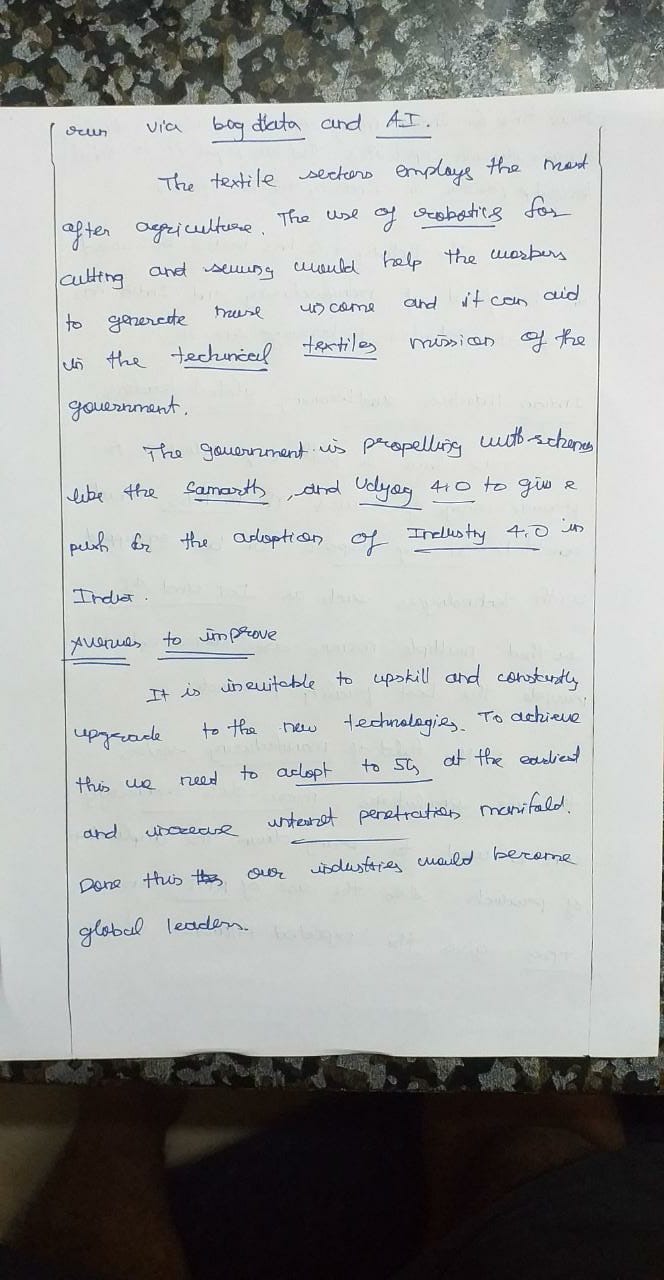 run via bog data and AI.
The textile sectors employs the most
after agriculture. The use of robotics for
cutting and sewing would help the workers
to generate more income and it can aid
in the technical textiles mission of the
government.
The government is propelling with schemes
like the Samarth, and Udyog 4.0 to give a
push for the adoption of Industry 4.0 in
India.
Avenues to improve
It is inevitable to upskill and constantly
upgrade to the new technologies. To achieve
this we need to adopt to 5G at the earliest
and increase internet penetration manifold.
Done this our industries would become
global leaders.